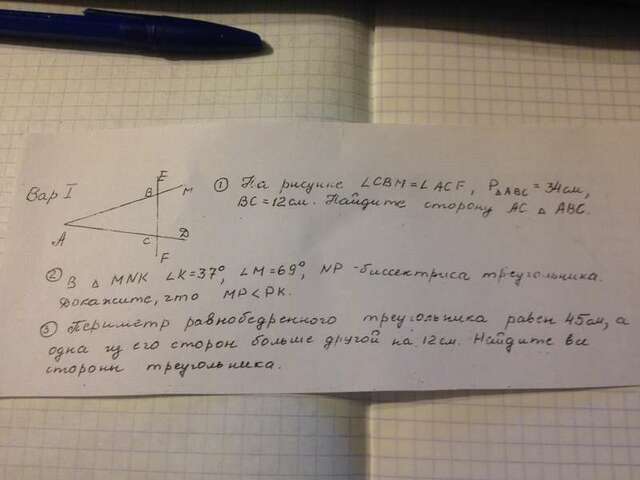 Вар I
E
B
M
A
C
D
F
① На рисунке ∠CBM = ∠ACF, P△ABC = 34см,
BC = 12см. Найдите сторону AC △ ABC.
② В △ MNK ∠K = 37°, ∠M = 69°, NP - биссектриса треугольника.
Докажите, что MP < PK.
③ Периметр равнобедренного треугольника равен 45см, а
одна из его сторон больше другой на 12см. Найдите все
стороны треугольника.